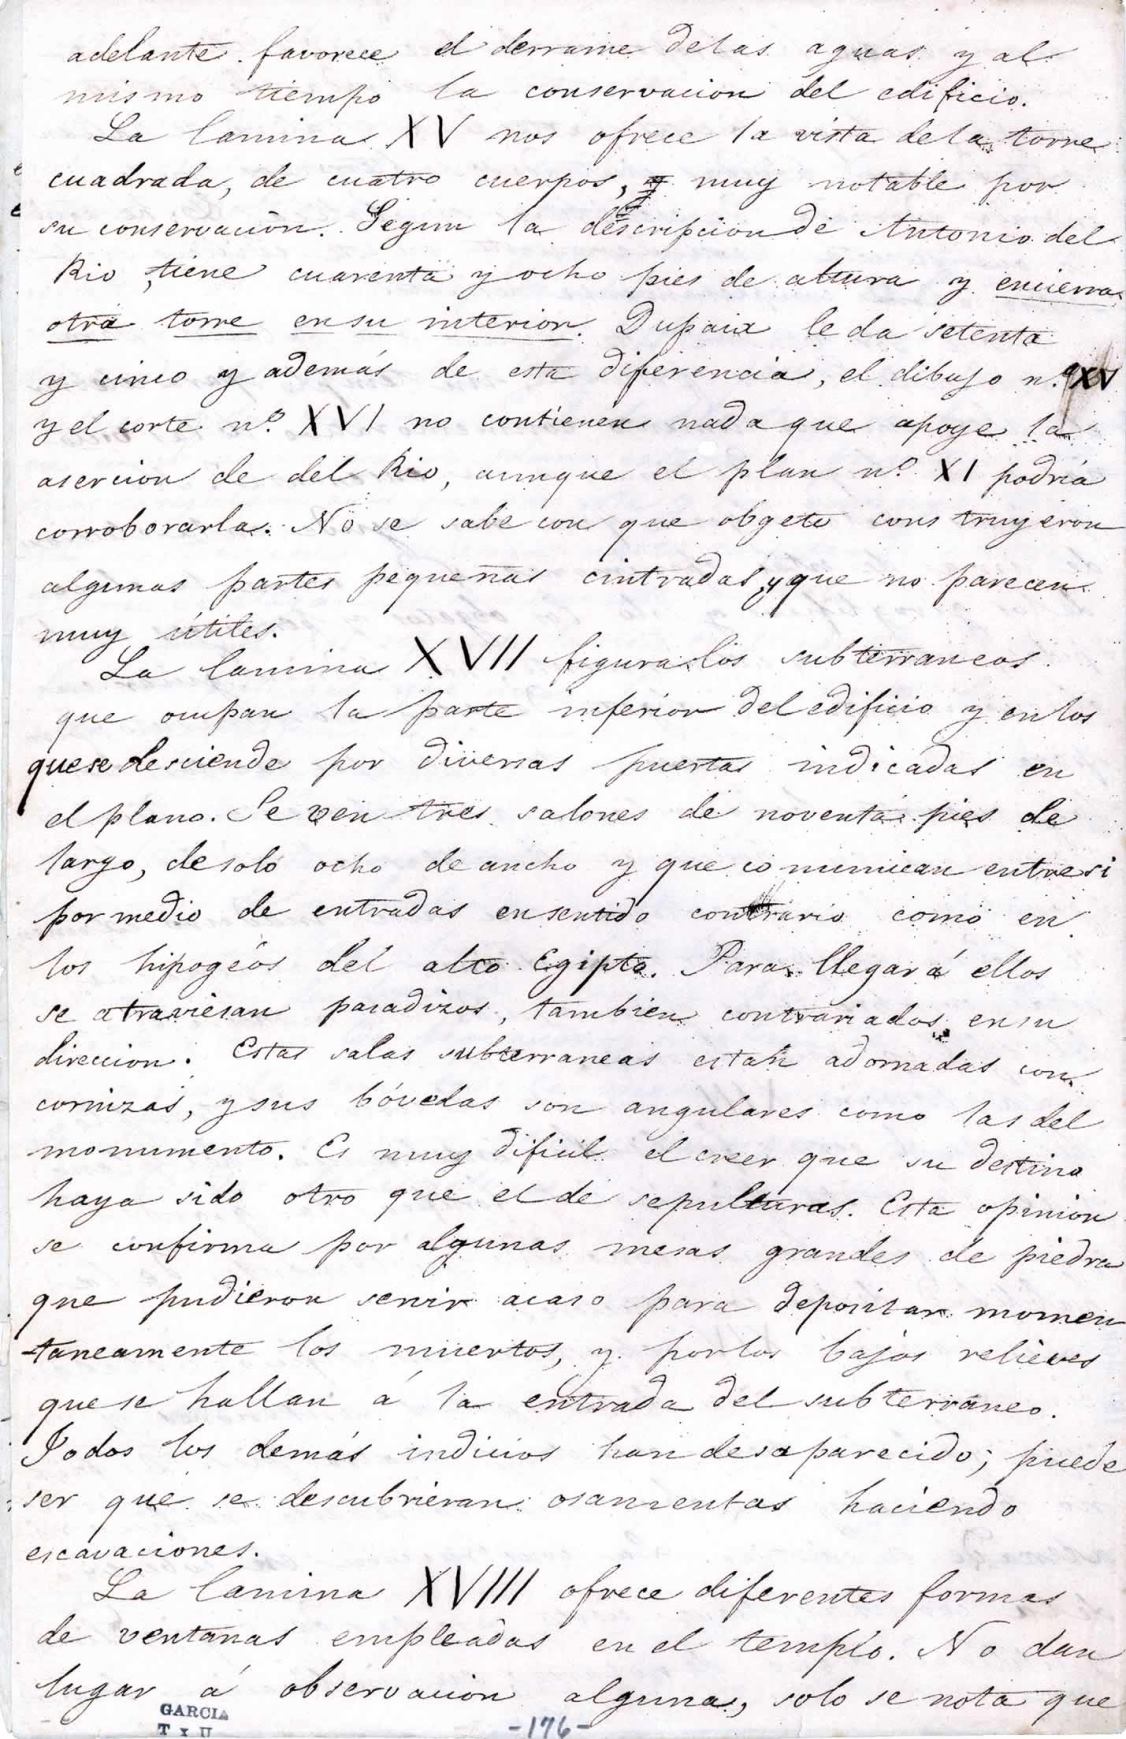 adelante favorece el derrame delas aguas y al
mismo tiempo la conservacion del edificio.
La lamina XV nos ofrece la vista dela torre
cuadrada, de cuatro cuerpos, y muy notable por
su conservación. Segun la descripcion de Antonio del
Rio, tiene cuarenta y ocho pies de altura y encierra
otra torre en su interior. Dupaix le da setenta
y cinco y además de esta diferencia, el dibujo n.º XV
y el corte n.º XVI no contienen nada que apoye la
asercion de del Rio, aunque el plan n.º XI podria
corroborarla. No se sabe con que obgeto construyeron
algunas partes pequeñas cintradas, y que no parecen
muy útiles.
La lamina XVII figura los subterraneos
que ocupan la parte inferior del edificio y en los
que se desciende por diversas puertas indicadas en
el plano. Se ven tres salones de noventa pies de
largo, de solo ocho de ancho y que comunican entre si
por medio de entradas en sentido contrario como en
los hipogéos del alto Egipto. Para llegar á ellos
se atraviesan pasadizos, tambien contrariados en su
direccion. Estas salas subterraneas están adornadas con
cornizas, y sus bóvedas son angulares como las del
monumento. Es muy dificil el creer que su destino
haya sido otro que el de sepulturas. Esta opinion
se confirma por algunas mesas grandes de piedra
que pudieron servir acaso para depositar momen
-taneamente los muertos, y por los bajos relieves
que se hallan á la entrada del subterráneo.
Todos los demás indicios han desaparecido; puede
ser que se descubrieran osamentas haciendo
escavaciones.
La lamina XVIII ofrece diferentes formas
de ventanas empleadas en el templo. No dan
lugar á observacion alguna, solo se nota que
GARCIA
-176-